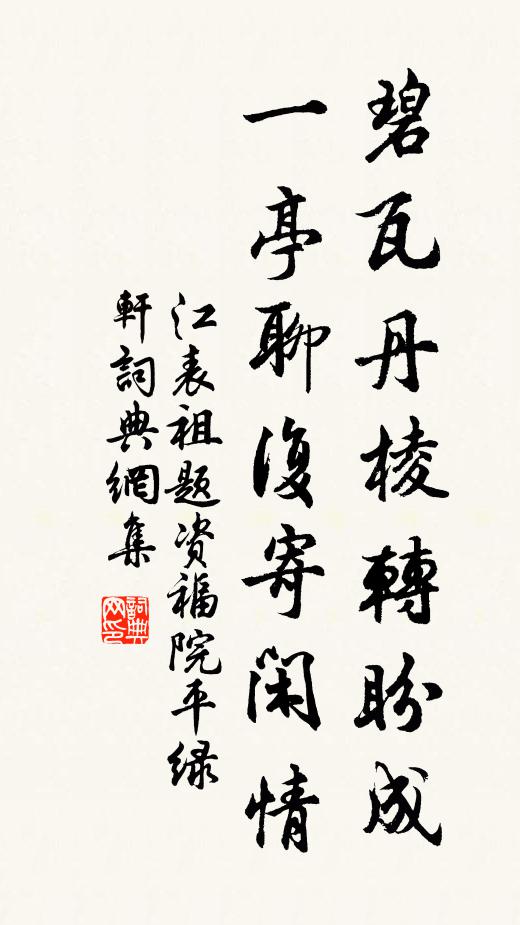 碧瓦丹棱轉盼成
一亭聊復寄閑情
江表祖題资福院平緑
軒詞典網集
詞典
网印